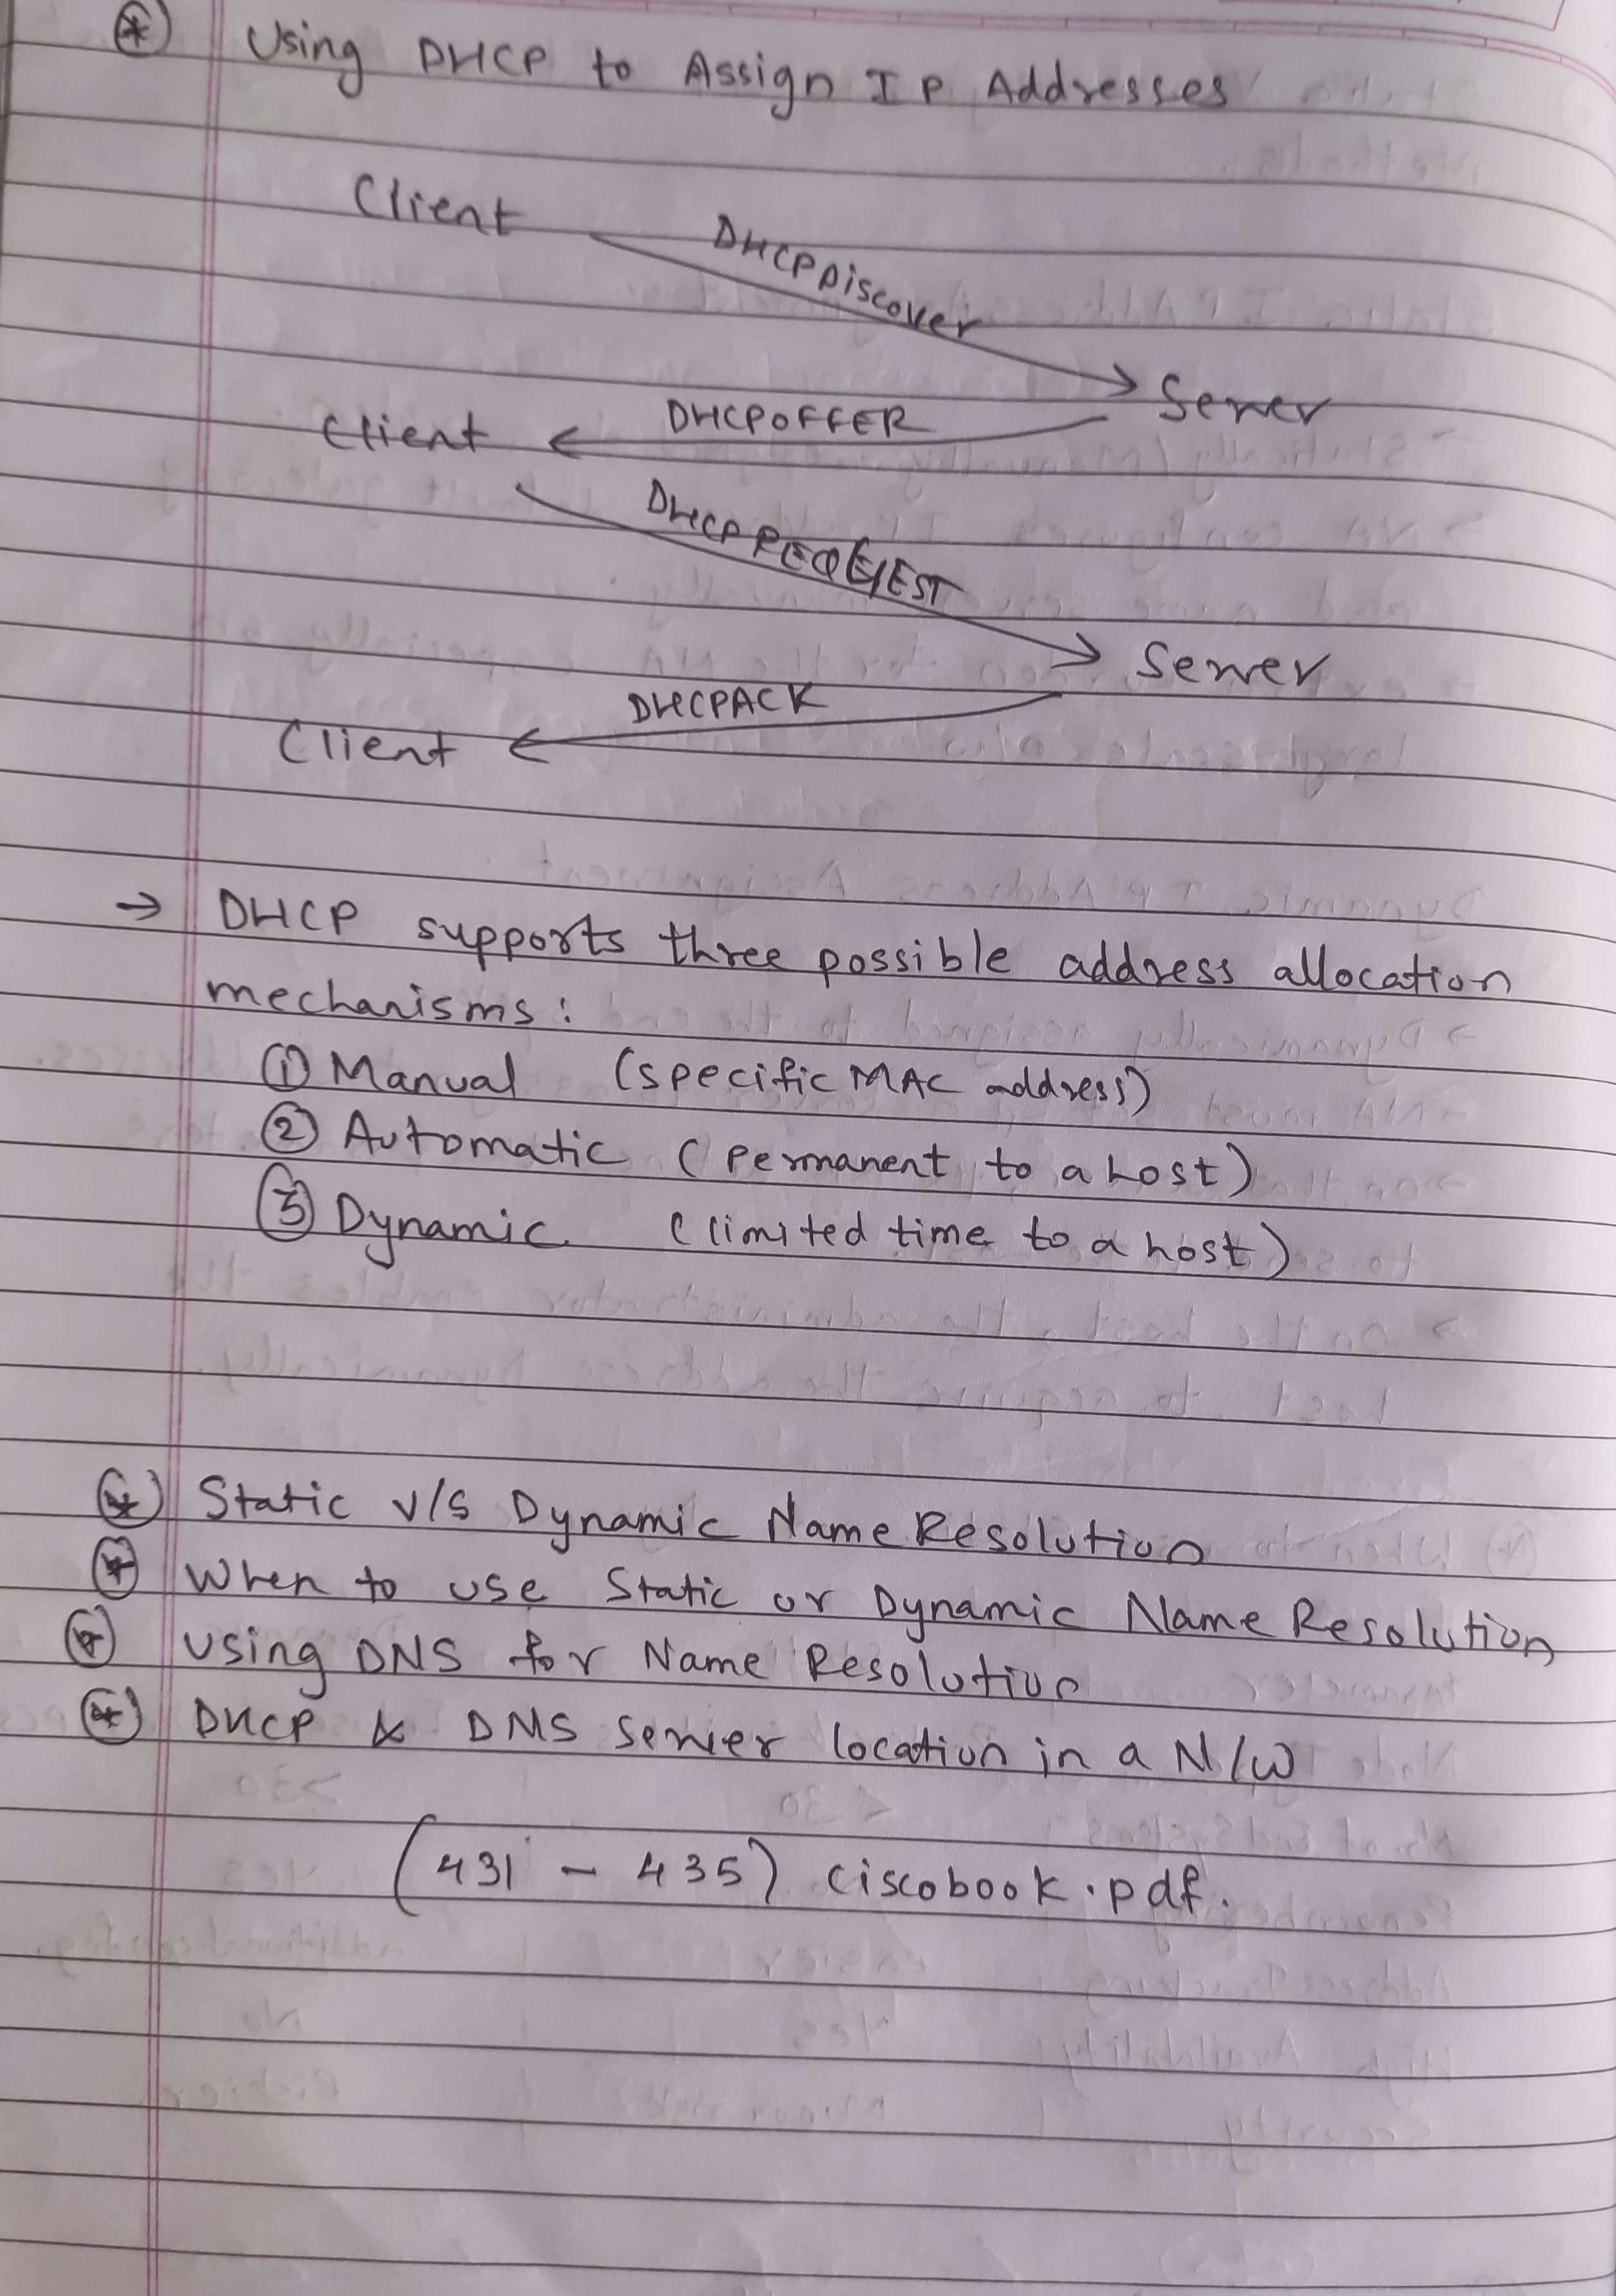 * Using DHCP to Assign IP Addresses
Client
DHCPDiscover
Server
Client
DHCPOFFER
DHCPREQUEST
Server
DHCPACK
Client
→ DHCP supports three possible address allocation
mechanisms:
① Manual (specific MAC address)
② Automatic (Permanent to a host)
③ Dynamic (limited time to a host)
* Static v/s Dynamic Name Resolution
* When to use Static or Dynamic Name Resolution
* Using DNS for Name Resolution
* DHCP & DNS Server location in a N/W
(431 - 435) ciscobook.pdf.